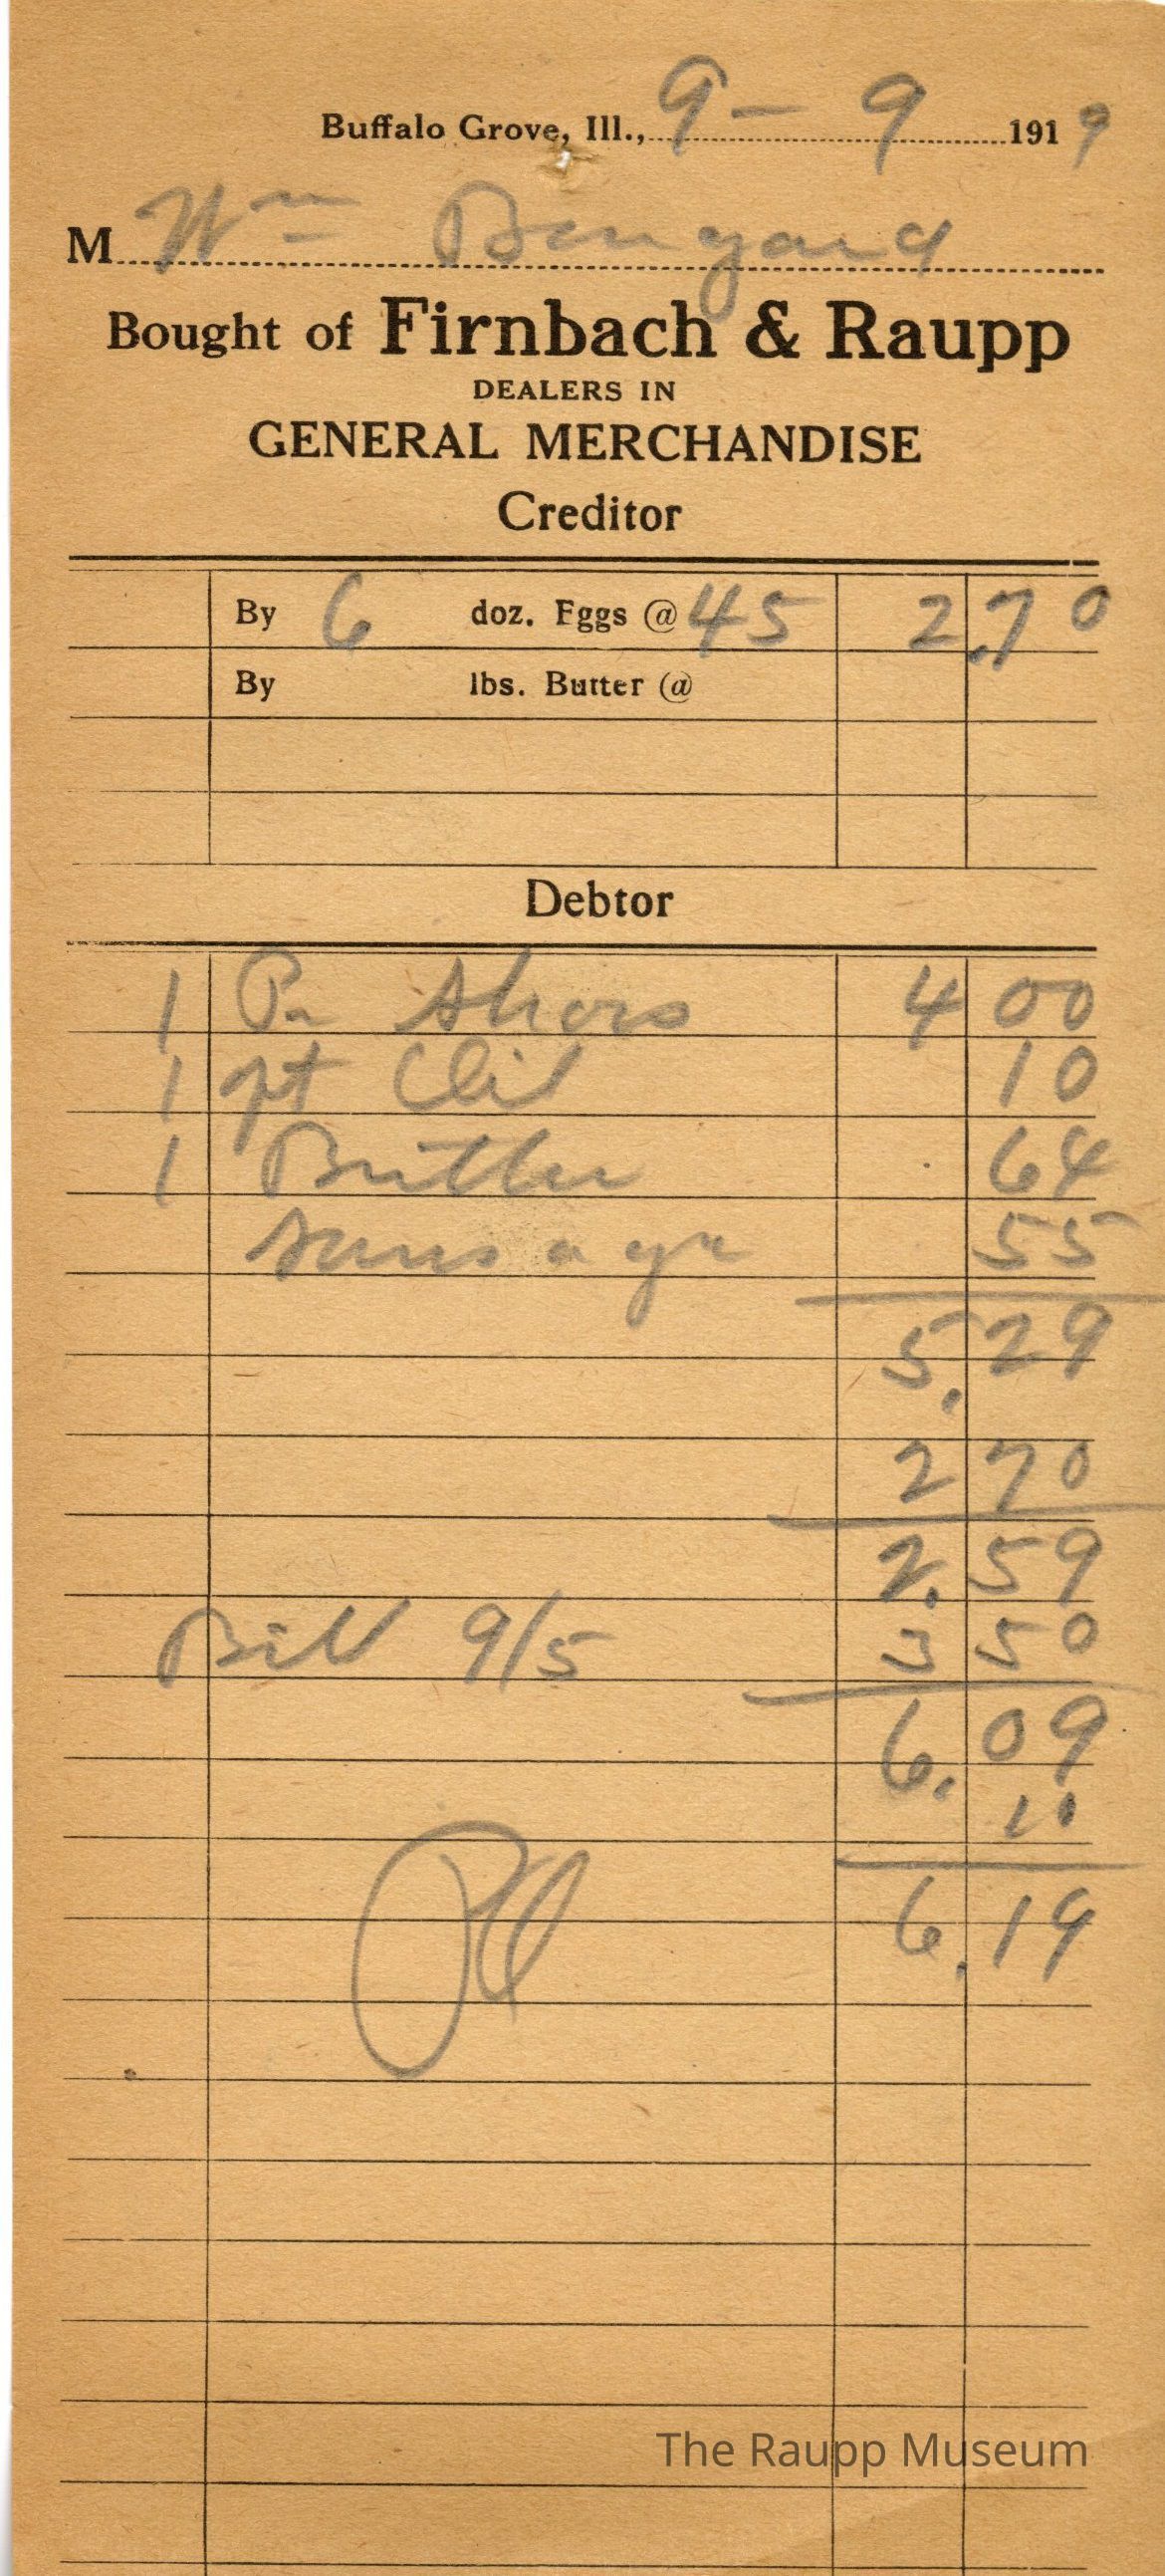 Buffalo Grove, Ill., 9 – 9 1919
M Wm Bengard
Bought of Firnbach & Raupp
DEALERS IN
GENERAL MERCHANDISE
Creditor
By 6 doz. Eggs @ 45 2.70
By lbs. Butter @
Debtor
1 Pr Shoes 4 00
1 pt Oil 10
1 Butter 64
Sausage 55
5.29
2 70
2.59
Bill 9/5 3 50
6.09
10
6.19
The Raupp Museum